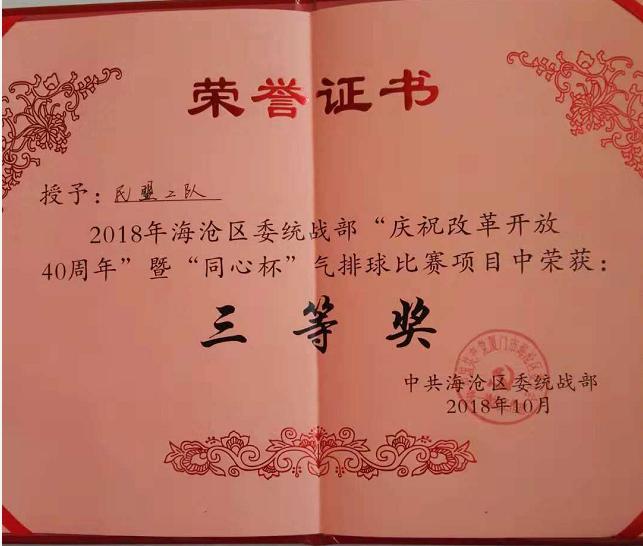 荣誉证书
授予：民盟二队
2018年海沧区委统战部“庆祝改革开放
40周年”暨“同心杯”气排球比赛项目中荣获：
三等奖
中共海沧区委统战部
2018年10月